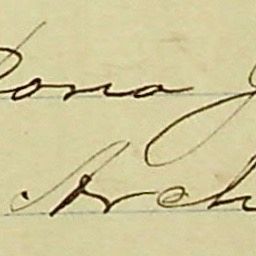 Dona J
Arch